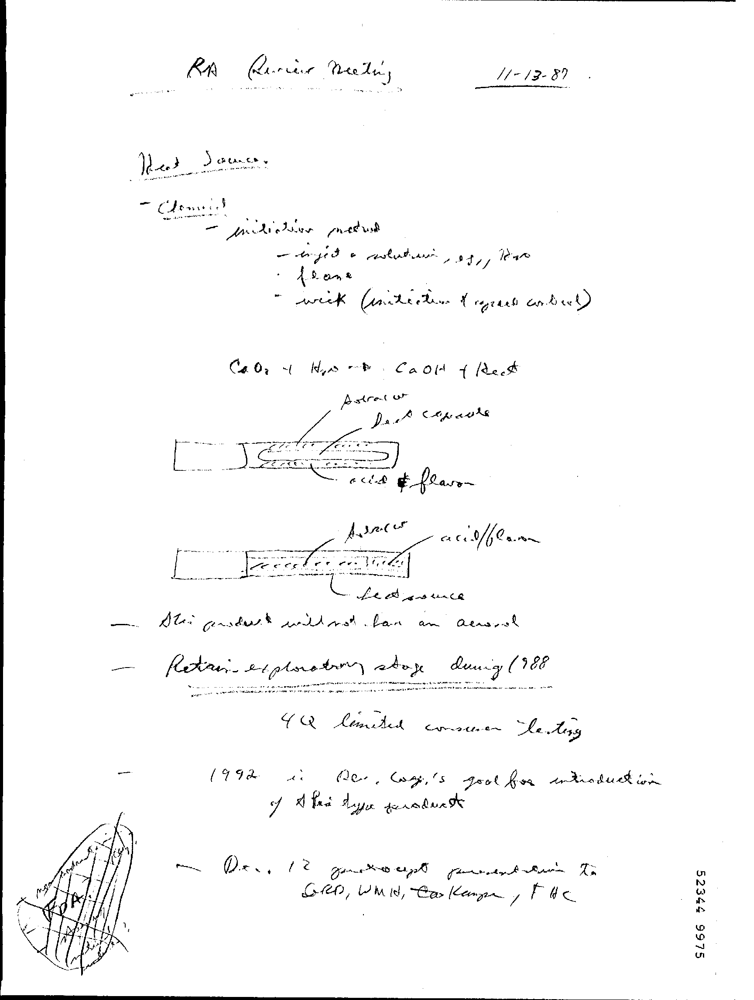 RA Review Meeting 11-13-87
Heat Source
- Chemical
- initiation method
- inject a solution, eg., H2O
- flame
- wick (initiation & control)
CaO2 + H2O → CaOH + Heat
heat capsule
acid & flavor
acid/flavor
heat source
— This product will not have an aerosol
— Retain exploratory stage during 1988
4Q limited consumer testing
— 1992 is goal for introduction
of this type product
— Dec. 12 presentation to
GRD, WMH, FHC
FDA
52344 9975